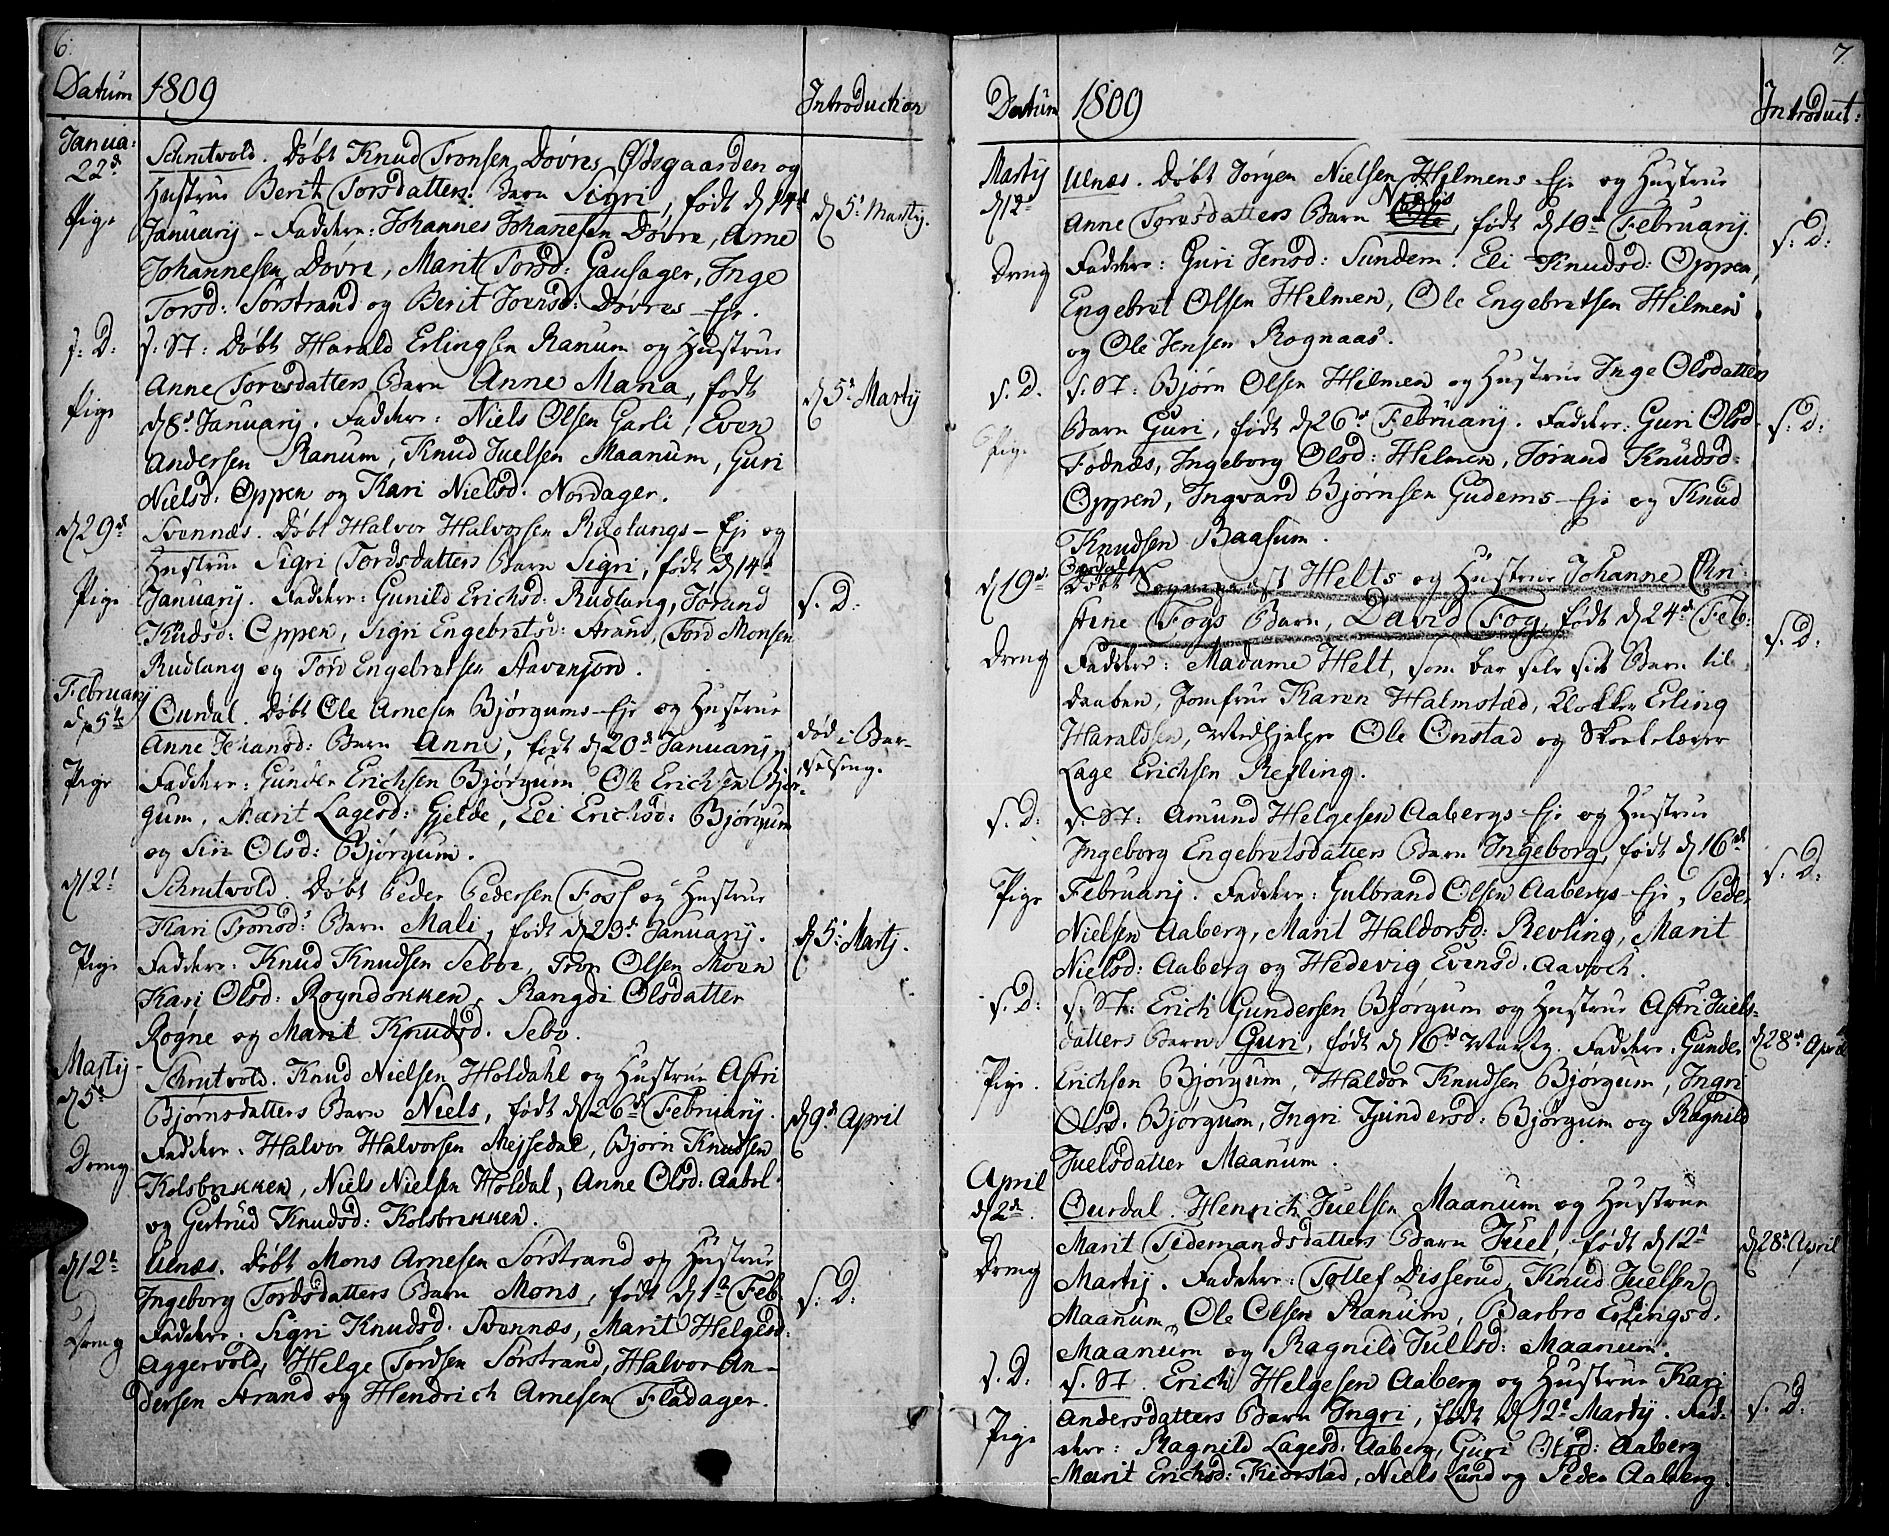 6.
Datum 1809 Introduction
Janua:
22d Schrutvold. Døbt Knud Tronsen Dovres Ødegaarden og
Hustrue Berit Torsdatters Barn Sigri, født d 14d
Pige Januarij - Faddere: Johannes Johanesen Dovre, Arne d 5d Martij.
Johannesen Dovre, Marit Torsd: Gausager, Inge
Torsd: Sørstrand og Berit Joensd: Dovres Eje.
s: D: s: St: Døbt Harald Erlingsen Ranum og Hustrue
Anne Toresdatters Barn Anne Maria, født
Pige d 8d Januarij. Faddere: Niels Olsen Garli, Even d 5d Martij
Andersen Ranum, Knud Juelsen Maanum, Guri
Nielsd: Oppen og Kari Nielsd: Nordager.
d 29d Svennæs. Døbt Halvor Halvorsen Rudlangs-Eje og
Hustrue Sigri Tordsdatters Barn Sigri, født d 14d
Pige Januarij. Faddere: Gunild Erichsd: Rudlang, Jørand s. D:
Knudsd: Oppen, Sigri Engebretsd: Strand, Tord Monsen
Rudlang og Tord Engebretsen Stavenjord.
Februarij
d 5te Ourdal. Døbt Ole Arnesen Bjørgums-Eje og Hustrue
Anne Johansd: Barn Anne, født d 20d Januarij død i Bar-
Pige Faddere: Gunder Erichsen Bjørgum, Ole Erichsen Bjør- selseng.
gum, Marit Lagesd: Gjelde, Eli Erichsd: Bjørgum
og Siri Olsd: Bjørgum.
d 12t Schrutvold. Døbt Peder Pedersen Foss og Hustrue
Kari Tronsd: Barn Mali, født d 29d Januarij. d 5d Martij.
Pige Faddere: Knud Knudsen Seboe, Tron Olsen Moen
Kari Olsd: Rogndokken, Rangdi Olsdatter
Rogne og Marit Knudsd. Sebo.
Martij
d 5d Schrutvold. Knud Nielsen Holdahl og Hustrue Astri
Bjørnsdatters Barn Niels, født d 26d Februarij. d 9d April
Dreng Faddere: Halvor Halvorsen Mejssedal, Bjørn Knudsen
Kolsbrekken, Niels Nielsen Holdal, Anne Olsd: Aabol
og Gertrud Knudsd: Kolsbrekken.
d 12d Ulnæs. Døbt Mons Arnesen Sørstrand og Hustrue
Ingeborg Tordsdatters Barn Mons, født d 1te Feb. s. D:
Dreng Faddere: Sigri Knudsd. Svennæs, Marit Helgesd:
Aggervold, Helge Tordsen Sørstrand, Halvor An-
dersen Strand og Hendrich Arnesen Fladager.
7.
Datum 1809 Introduct:
Martij Ulnæs. Døbt Jørgen Nielsen Helmens-Eje og Hustrue
d 12d Anne Toresdatters Barn Niels, født d 10de Februarij. s: D:
Dreng Faddere: Guri Jensd: Sundem, Eli Knudsd: Oppen,
Engebret Olsen Helmen, Ole Engebretsen Helmen
og Ole Jensen Rognaas.
s. D. s. St: Bjørn Olsen Helmen og Hustrue Inge Olsdatters
Barn Guri, født d 26d Februarij. Faddere: Guri Olsd. s: D:
Pige Fodnæs, Ingeborg Olsd: Helmen, Jørand Knudsd:
Oppen, Ingvard Bjørnsen Gudems-Eje og Knud
Knudsen Baasum.
Ourdal
d 19d Døbt Sogneprest Helts og Hustrue Johanne Chri
stine Fogs Barn, David Fog, født d 24d Feb: s. D:
Dreng Faddere: Madame Helt, som bar selv sit Barn til
daaben, Jomfrue Karen Halmstad, Klokker Erling
Haraldsen, Medhjelper Ole Onstad og Skolelærer
Lage Erichsen Refling.
s. D: s. St: Amund Helgesen Aabergs-Eje og Hustrue
Ingeborg Engebretsdatters Barn Ingeborg, født d 16de s: D:
Pige Februarij. Faddere: Gulbrand Olsen Aabergs-Eje, Peder
Nielsen Aaberg, Marit Haldorsd: Revling, Marit
Nielsd: Aaberg og Hedevig Evensd.
s: D: s. St: Erich Gundersen Bjørgum og Hustrue Astri Juels-
datters Barn Guri, født d 16d Marty. Faddere: Gunder d 28d April
Pige. Erichsen Bjørgum, Haldor Knudsen Bjørgum, Ingri
Olsd. Bjørgum, Ingri Gundersd: Bjørgum og Ragnild
Juelsdatter Maanum.
April
d 2de. Ourdal. Henrich Juelsen Maanum og Hustrue
Marit Tidemandsdatters Barn Juel, født d 12d d 28d April
Dreng Martij. Faddere: Tollef Disserud, Knud Juelsen
Maanum, Ole Olsen Ranum, Barbro Erlingsd:
Maanum og Ragnild Juelsd: Maanum.
s. D. s. St. Erich Helgesen Aaberg og Hustrue Kari
Andersdatters Barn Ingri, født d 12d Martij. Fad- s: D:
Pige dere: Ragnild Lagesd: Aaberg, Guri Olsd: Aaberg
Marit Erichsd: Kierstad, Niels Lund og Peder Aaberg.